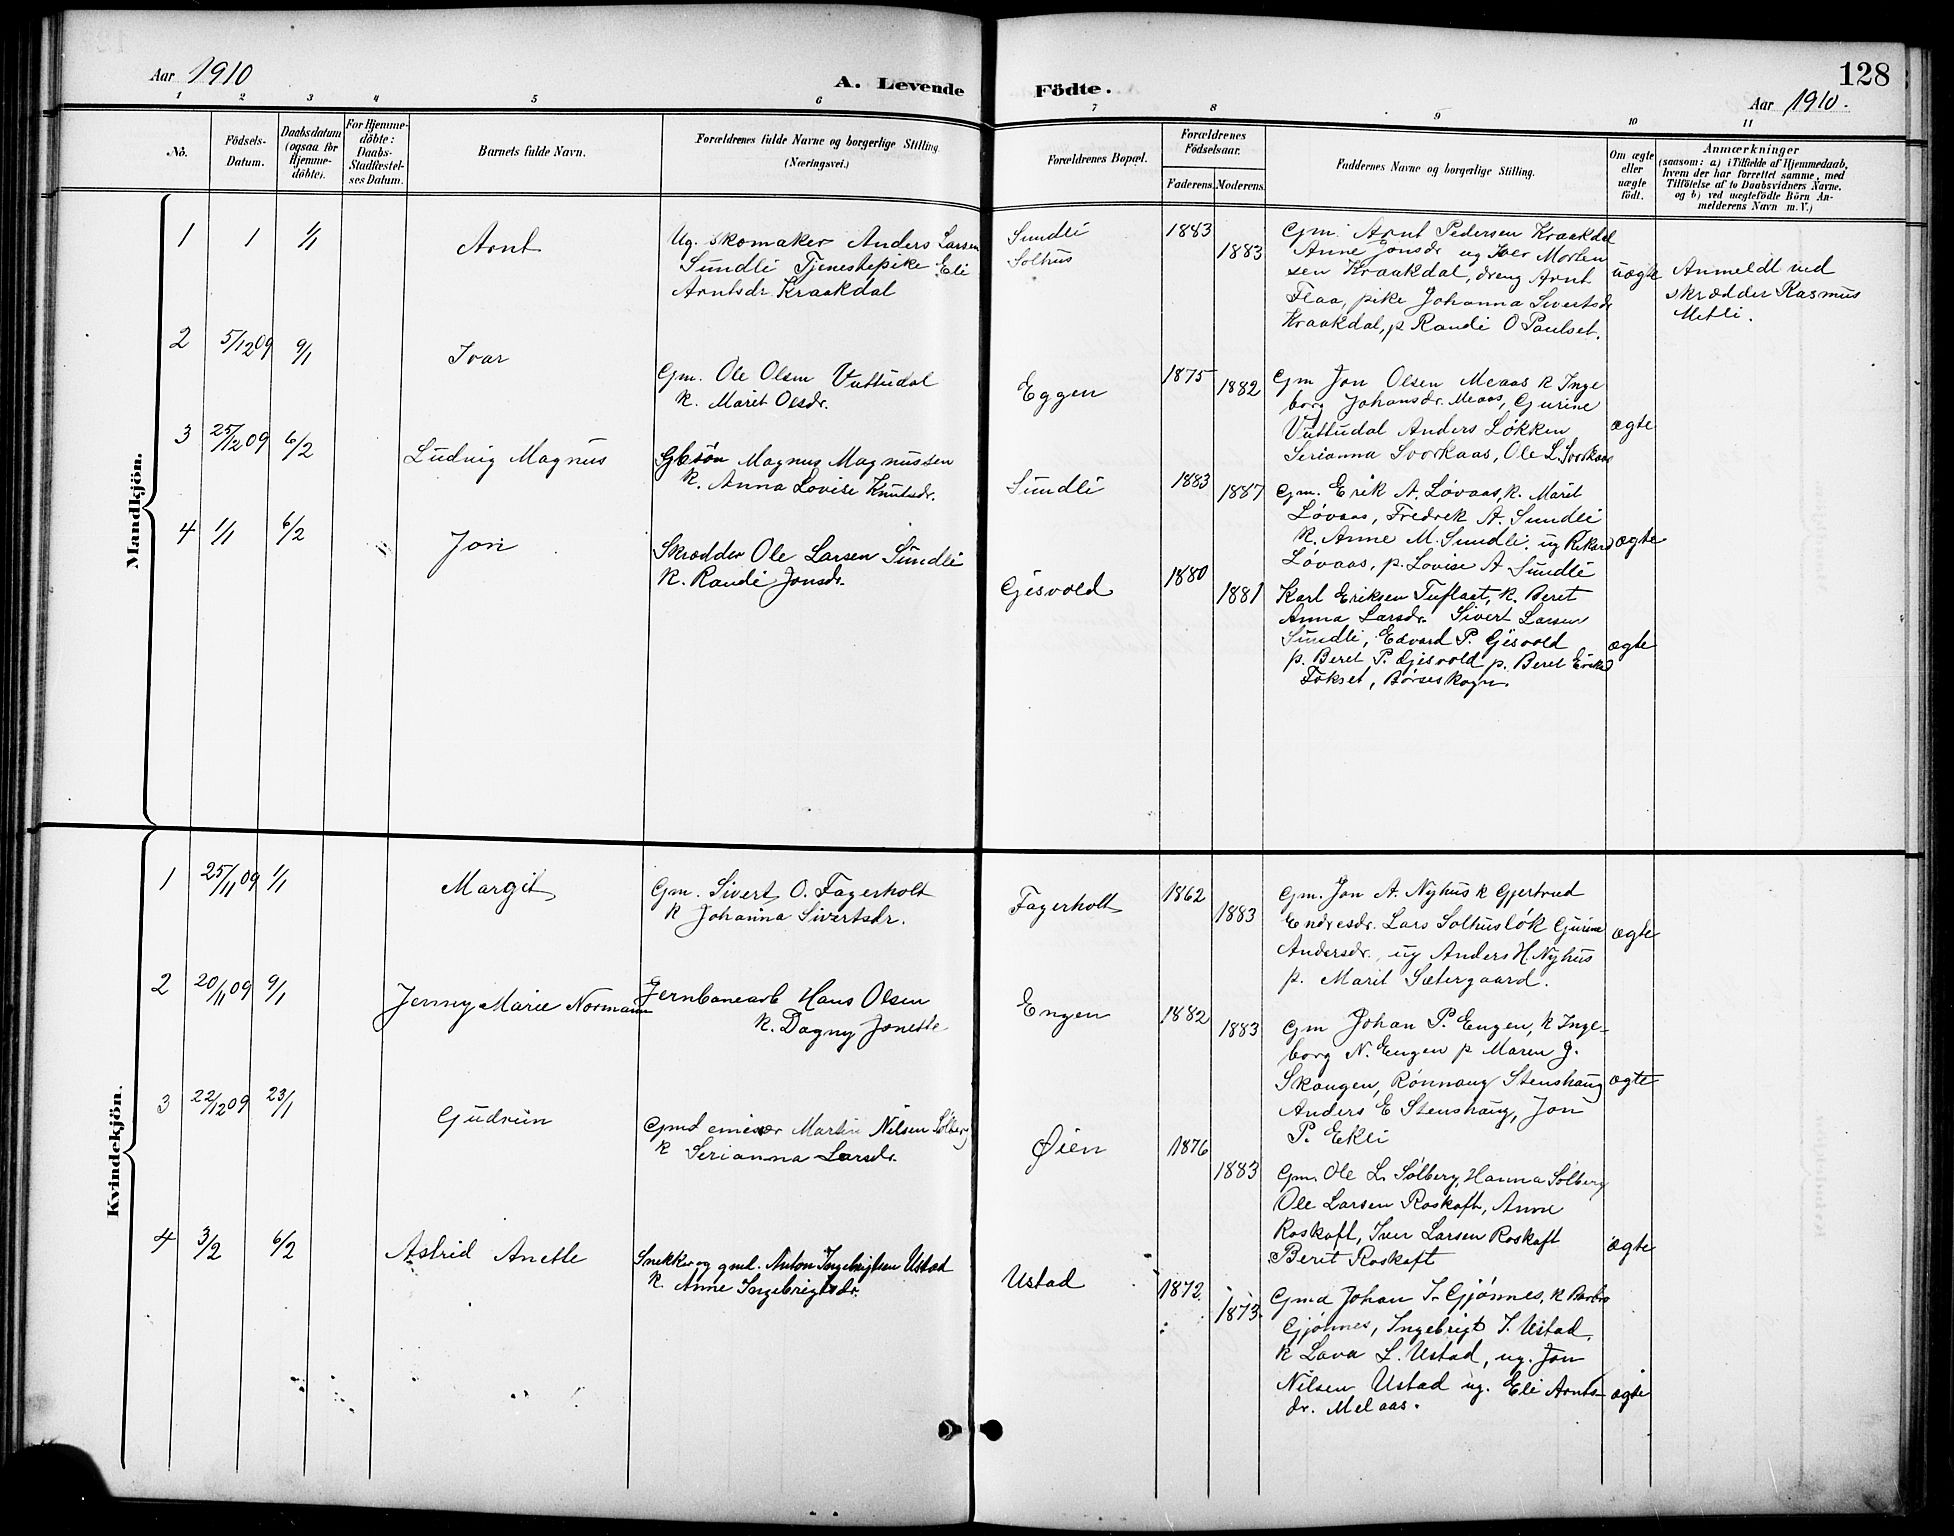 Aar 1910
A. Levende
Födte.
128
Aar 1910.
1 2 3 4 5 6 7 8 9 10 11
No.
Födsels-
Datum.
Daabsdatum
(ogsaa for
Hjemme-
döbte).
For Hjemme-
döbte:
Daabs-
Stadfæstel-
ses Datum.
Barnets fulde Navn.
Forældrenes fulde Navne og borgerlige Stilling.
(Næringsvei.)
Forældrenes Bopæl.
Forældrenes
Födselsaar.
Faderens.
Moderens.
Faddernes Navne og borgerlige Stilling.
Om ægte
eller
uægte
födt.
Anmærkninger
(saasom: a) i Tilfælde af Hjemmedaab,
hvem der har forrettet samme, med
Tilföielse af to Daabsvidners Navne.
og b) ved uægtefödte Börn An-
melderens Navn m. V.)
Mandkjön.
1 1 1/1 Arnt
Ug. skomaker Anders Larsen
Sundli Tjenestepike Eli
Arntsdr. Kraakdal
Sundli
Solhus
1883
1883
Gm. Arnt Pedersen Kraakdal
Anne Jonsdr. ug Iver Morten
sen Kraakdal, dreng Arnt
Flaa, pike Johanna Sivertsdr
Kraakdal, p Randi O Paulset.
uægte
Anmeldt ved
skrædder Rasmus
Metli.
2 5/12 09 9/1 Ivar
Gm. Ole Olsen Vuttudal
k. Marit Olsdr.
Eggen
1875
1882
Gm Jon Olsen Meaas k Inge
borg Johansdr. Meaas, Gurine
Vuttudal Anders Løkken
Serianna Svorkaas, Ole L. Svorkaas
ægte
3 25/12 09 6/2 Ludvig Magnus
Gbsön Magnus Magnussen
k. Anna Lovise Knutsdr.
Sundli
1883
1887
Gm. Erik A. Løvaas, k. Marit
Løvaas, Fredrek A. Sundli
k. Anne M. Sundli, ug Rikard
Løvaas, p. Lovise A Sundli
ægte
4 1/1 6/2 Jon
Skrædder Ole Larsen Sundli
k. Randi Jonsdr.
Gisvold
1880
1881
Karl Eriksen Tuflaet, k. Beret
Anna Larsdr. Sivert Larsen
Sundli, Edvard P. Gisvold
p. Beret P. Gisvold p. Beret Eriksd
Fokset, Børseskogn.
ægte
Kvindekjön.
1 25/11 09 1/1 Margit
Gm. Sivert O. Fagerholt
k Johanna Sivertsdr.
Fagerholt
1862
1883
Gm. Jon A. Nyhus k Gjertrud
Endresdr. Lars Solhusløk Gurine
Andersdr., ug Anders H. Nyhus
p. Marit Sætergaard.
ægte
2 20/11 09 9/1 Jenny Marie Normann
Jernbanearb Hans Olsen
k. Dagny Jonette
Engen
1882
1883
Gm Johan P. Engen, k Inge-
borg N. Engen p Maren J.
Skaugen, Rønnaug Stenshaug
Anders E Stenshaug, Jon
P. Ekli
ægte
3 22/12 09 23/1 Gudrun
Gmd Martin Nilsen Solberg
k Serianna Larsdr.
Øien
1876
1883
Gm. Ole L. Solberg, Hanna Solberg
Ole Larsen Roskaft, Anne
Roskaft, Iver Larsen Roskaft
Berit Roskaft
ægte
4 3/2 6/2 Astrid Anette
Snekker og gmd. Anton Ingebrigtsen Ustad
k. Anne Ingebrigtsdr.
Ustad
1872.
1873.
Gmd Johan I. Gjønnes, k Barbro
Gjønnes, Ingebrigt J. Ustad
k Lava L. Ustad, ug. Jon
Nilsen Ustad ug. Eli Arnts-
dr. Melaas.
ægte